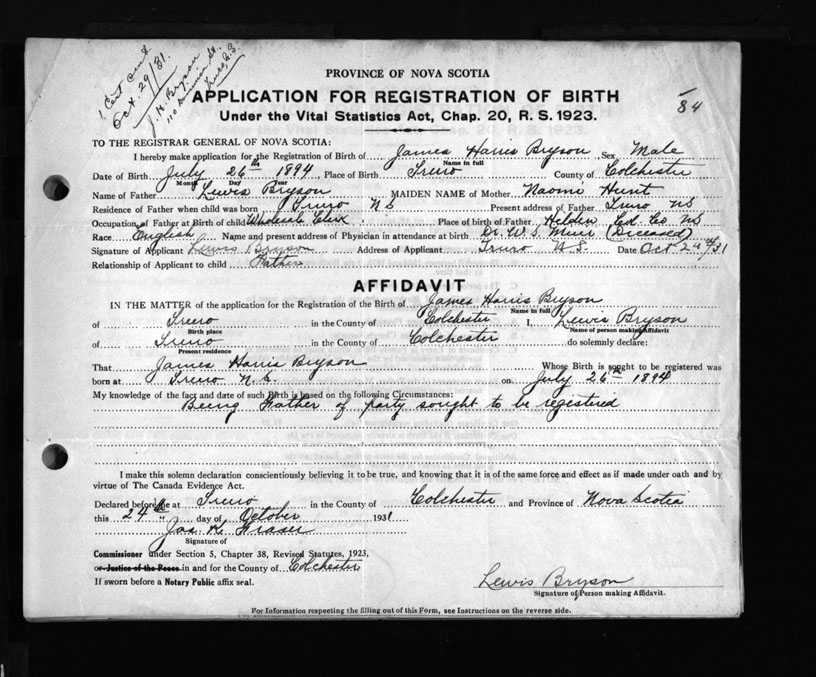 1 Cert sent
Oct. 29/31.
J. H. Bryson
110 Dominion St.
Truro, N.S.
PROVINCE OF NOVA SCOTIA
APPLICATION FOR REGISTRATION OF BIRTH
Under the Vital Statistics Act, Chap. 20, R. S. 1923.
84
TO THE REGISTRAR GENERAL OF NOVA SCOTIA:
I hereby make application for the Registration of Birth of James Harris Bryson Sex Male
Name in full
Date of Birth July 26th 1894 Place of Birth Truro County of Colchester
Month Day Year
Name of Father Lewis Bryson MAIDEN NAME of Mother Naomi Hunt
Residence of Father when child was born Truro N S Present address of Father Truro NS
Occupation of Father at Birth of child Wholesale Clerk Place of birth of Father Hilden Col. Co. NS
Race English Name and present address of Physician in attendance at birth Dr. W. S. Muir (Diceased)
Signature of Applicant Lewis Bryson Address of Applicant Truro N.S. Date Oct 24th/31
Relationship of Applicant to child Father
AFFIDAVIT
IN THE MATTER of the application for the Registration of the Birth of James Harris Bryson
Name in full
of Truro in the County of Colchester I, Lewis Bryson
Birth place Name of person making Affidavit
of Truro in the County of Colchester do solemnly declare:
Present residence
That James Harris Bryson Whose Birth is sought to be registered was
born at Truro N.S. on July 26th 1894
My knowledge of the fact and date of such Birth is based on the following Circumstances:
Being Father of party sought to be registered
I make this solemn declaration conscientiously believing it to be true, and knowing that it is of the same force and effect as if made under oath and by
virtue of The Canada Evidence Act.
Declared before me at Truro in the County of Colchester and Province of Nova Scotia
this 24th day of October 1931
Jas. K. Fraser
Signature of
Commissioner under Section 5, Chapter 38, Revised Statutes, 1923,
or Justice of the Peace in and for the County of Colchester
If sworn before a Notary Public affix seal.
Lewis Bryson
Signature of Person making Affidavit.
For Information respecting the filling out of this Form, see Instructions on the reverse side.